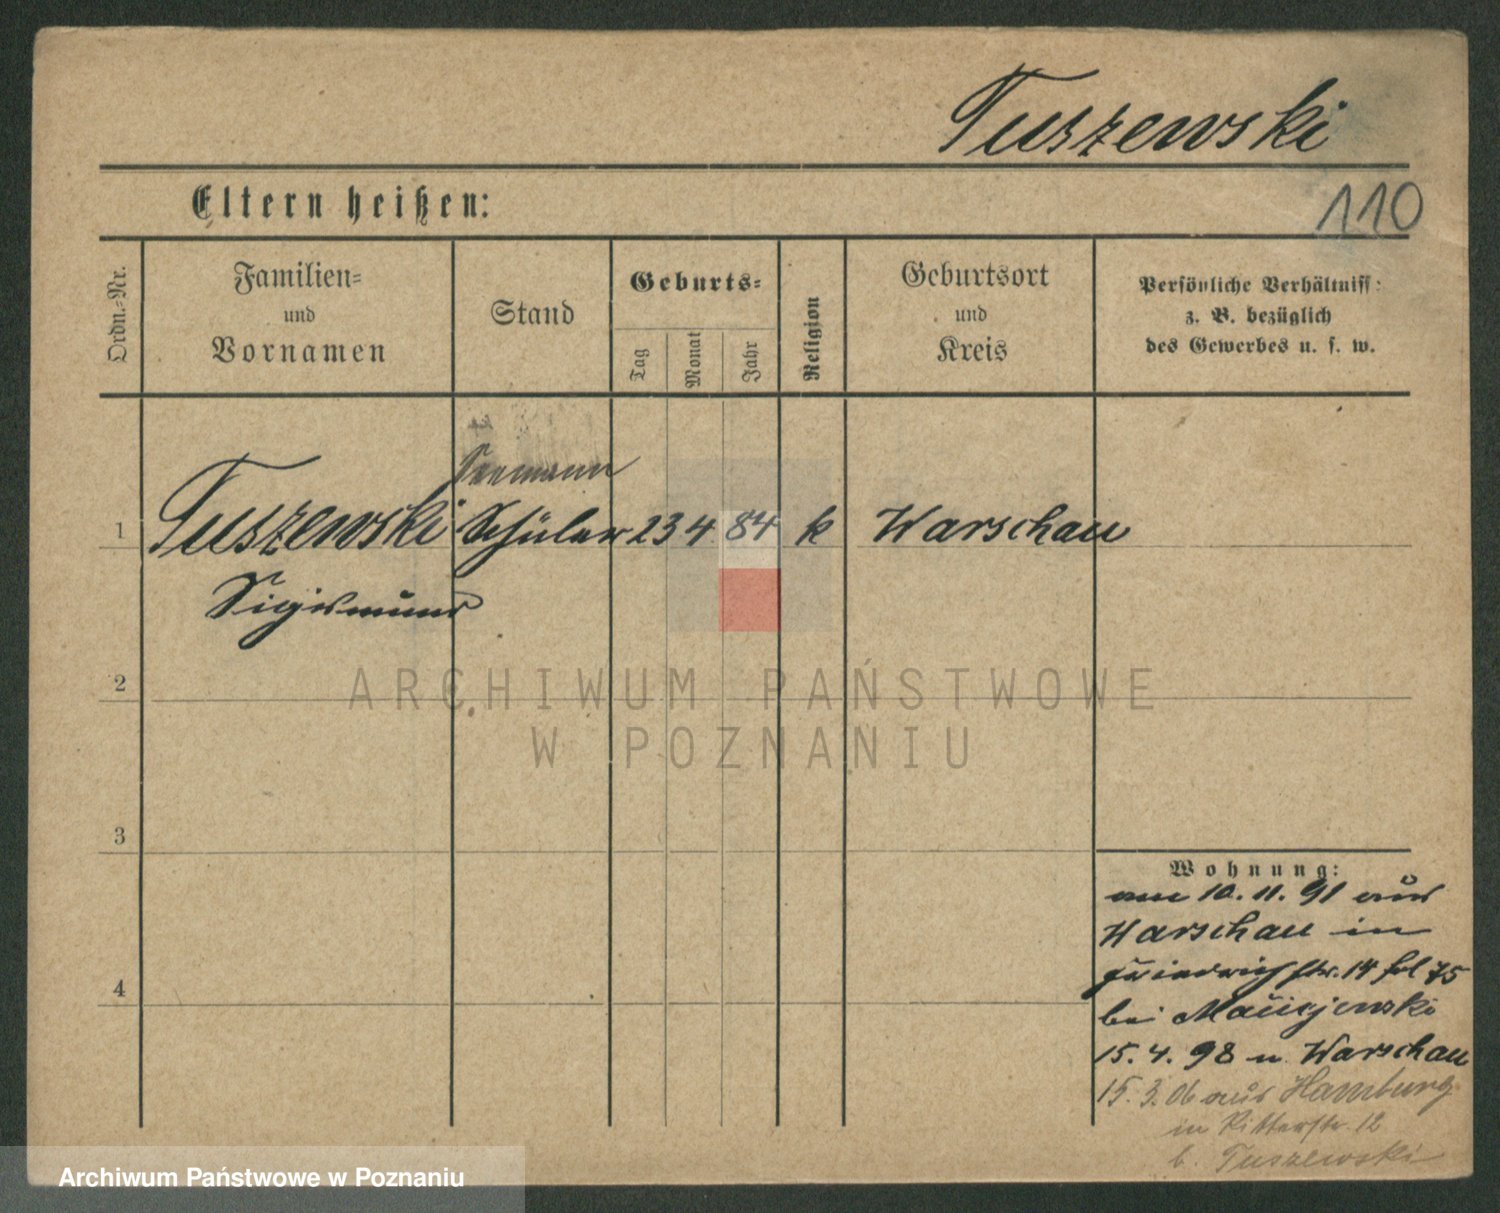 Tuszewski
Eltern heißen:
110
Ordn.-Nr.
Familien-
und
Vornamen
Stand
Geburts-
Tag
Monat
Jahr
Religion
Geburtsort
und
Kreis
Persönliche Verhältniss:
z. B. bezüglich
des Gewerbes u. s. w.
Seemann
1 Tuszewski Schüler 23 4 84 k Warschau
Sigismund
2
ARCHIWUM PAŃSTWOWE
W POZNANIU
3
4
Wohnung:
am 10. 11. 91 aus
Warschau in
Friedrichstr. 14 fol 75
bei Maciejewski
15. 4. 98 n. Warschau
15. 3. 06 aus Hamburg
in Ritterstr. 12
b. Tuszewski
Archiwum Państwowe w Poznaniu